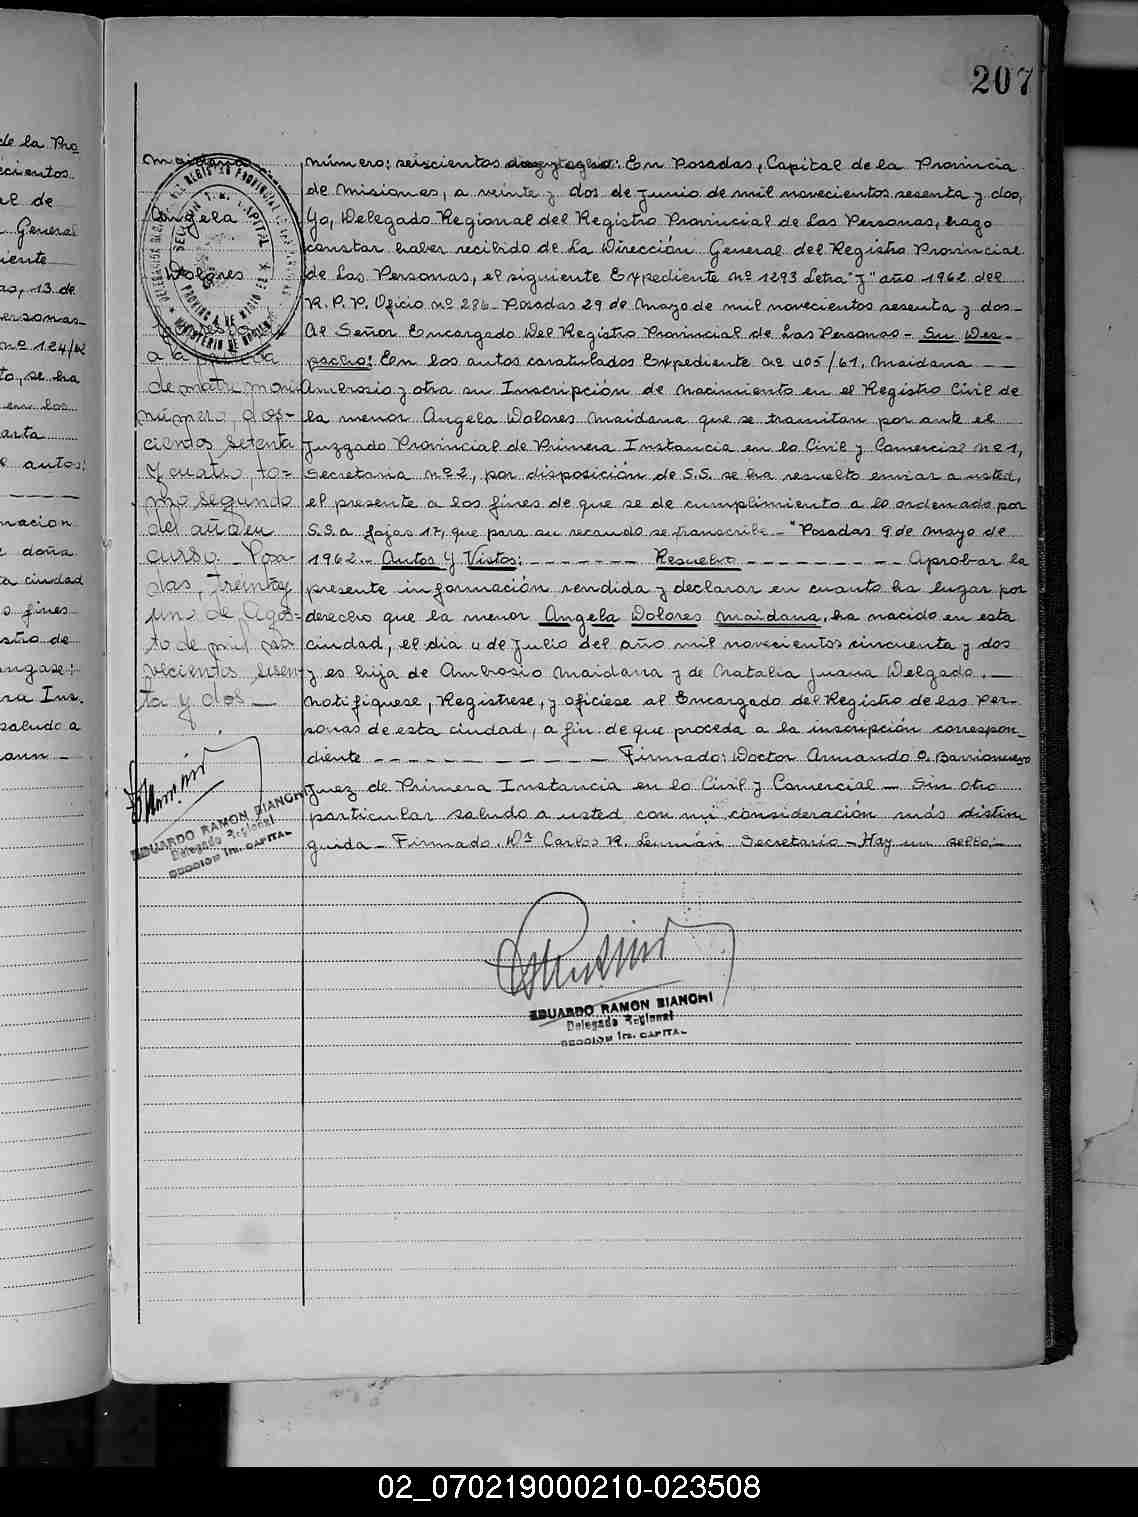 207
de la Pro
cientos
al de
General
iente
as, 13 de
ersonas-
nº 124/62
to, se ha
en los
arta
autos:
macion
doña
ta ciudad
o fines
stro de
ongase:
ra Ins.
saludo a
ann -
Maidana
Angela
Dolores
a la
de matrimoni
número, dos-
cientos setenta
y cuatro, to-
mo segundo
del año en
curso. Posa-
das, treinta y
uno de Agos-
to de mil no-
vecientos sesen-
ta y dos -
EDUARDO RAMON BIANCHI
Delegado Regional
SECCION 1ra. CAPITAL
número: seiscientos : En Posadas, Capital de la Provincia
de Misiones, a veinte y dos de Junio de mil novecientos sesenta y dos,
Yo, Delegado Regional del Registro Provincial de Las Personas, hago
constar haber recibido de La Dirección General del Registro Provincial
de Las Personas, el siguiente Expediente nº 1293 Letra "J" año 1962 del
R.P.P. Oficio nº 286 - Posadas 29 de Mayo de mil novecientos sesenta y dos-
Al Señor Encargado Del Registro Provincial de Las Personas - Su Des-
pacho: En los autos caratulados Expediente nº 405/61. Maidana
Ambrosio y otra su Inscripción de nacimiento en el Registro Civil de
la menor Angela Dolores Maidana que se tramitan por ante el
Juzgado Provincial de Primera Instancia en lo Civil y Comercial nº 1,
Secretaria nº 2, por disposición de S.S. se ha resuelto enviar a usted,
el presente a los fines de que se de cumplimiento a lo ordenado por
S.S. a fojas 17, que para su recaudo se transcribe - "Posadas 9 de mayo de
1962.- Autos Y Vistos: - - - - - - - Resuelvo - - - - - - - - - Aprobar la
presente información rendida y declarar en cuanto ha lugar por
derecho que la menor Angela Dolores Maidana, ha nacido en esta
ciudad, el dia 4 de Julio del año mil novecientos cincuenta y dos
y es hija de Ambrosio Maidana y de Natalia Juana Delgado. -
Notifiquese, Registrese, y oficiese al Encargado del Registro de las Per-
sonas de esta ciudad, a fin de que proceda a la inscripción correspon-
diente - - - - - - - - - - - - - Firmado: Doctor Armando O. Barrionuevo
Juez de Primera Instancia en lo Civil y Comercial - Sin otro
particular saludo a usted con mi consideración más distin
guida - Firmado. Dr Carlos R. Secretario - Hay un sello:-
EDUARDO RAMON BIANCHI
Delegado Regional
SECCION 1ra. CAPITAL
02_070219000210-023508